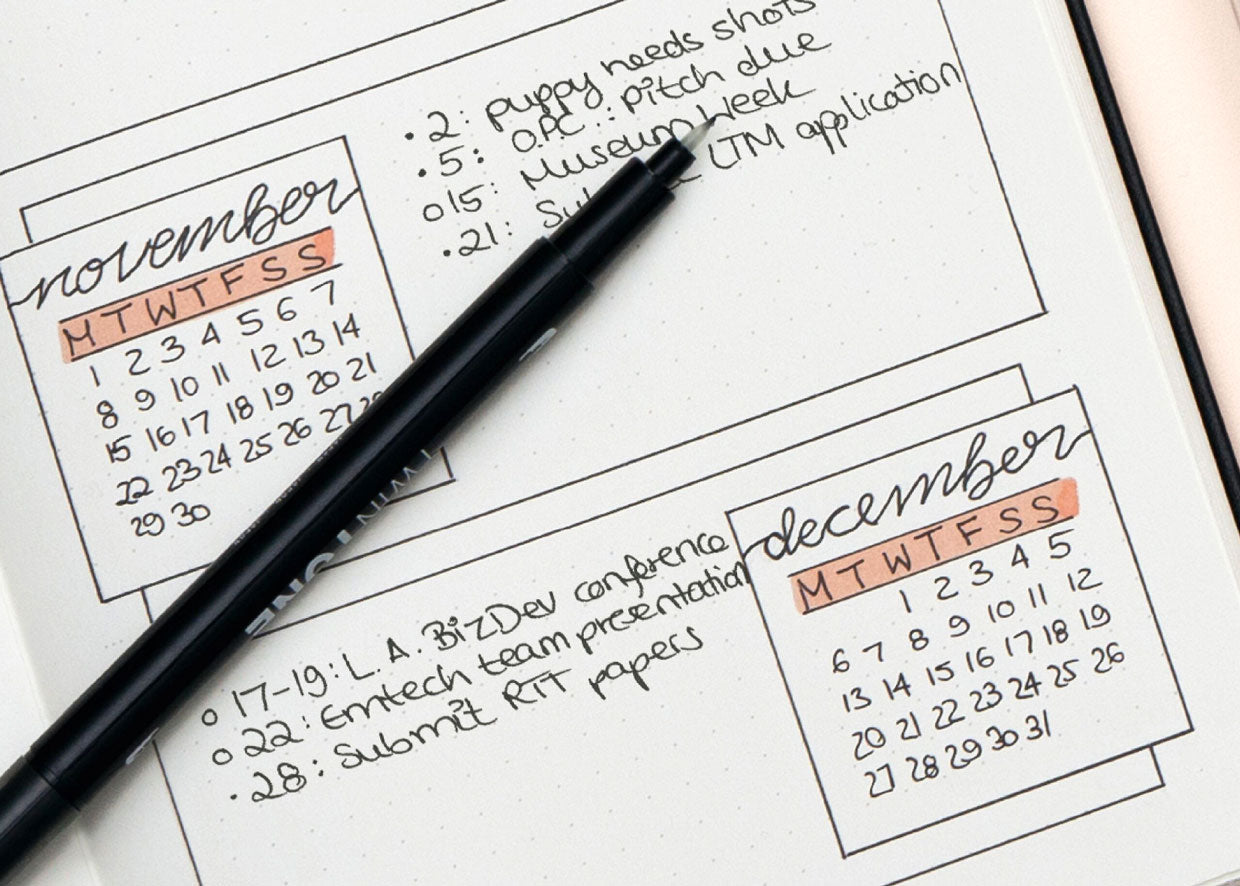 • 2: puppy needs shots
• 5: O.P.C.: pitch due
o 15: Museum Week
• 21: LTM application
november
M T W T F S S
1 2 3 4 5 6 7
8 9 10 11 12 13 14
15 16 17 18 19 20 21
22 23 24 25 26 27 28
29 30
TWINTONE
december
M T W T F S S
1 2 3 4 5
6 7 8 9 10 11 12
13 14 15 16 17 18 19
20 21 22 23 24 25 26
27 28 29 30 31
o 17-19: L.A. BizDev conference
o 22: Emtech team presentation
• 28: Submit RIT papers